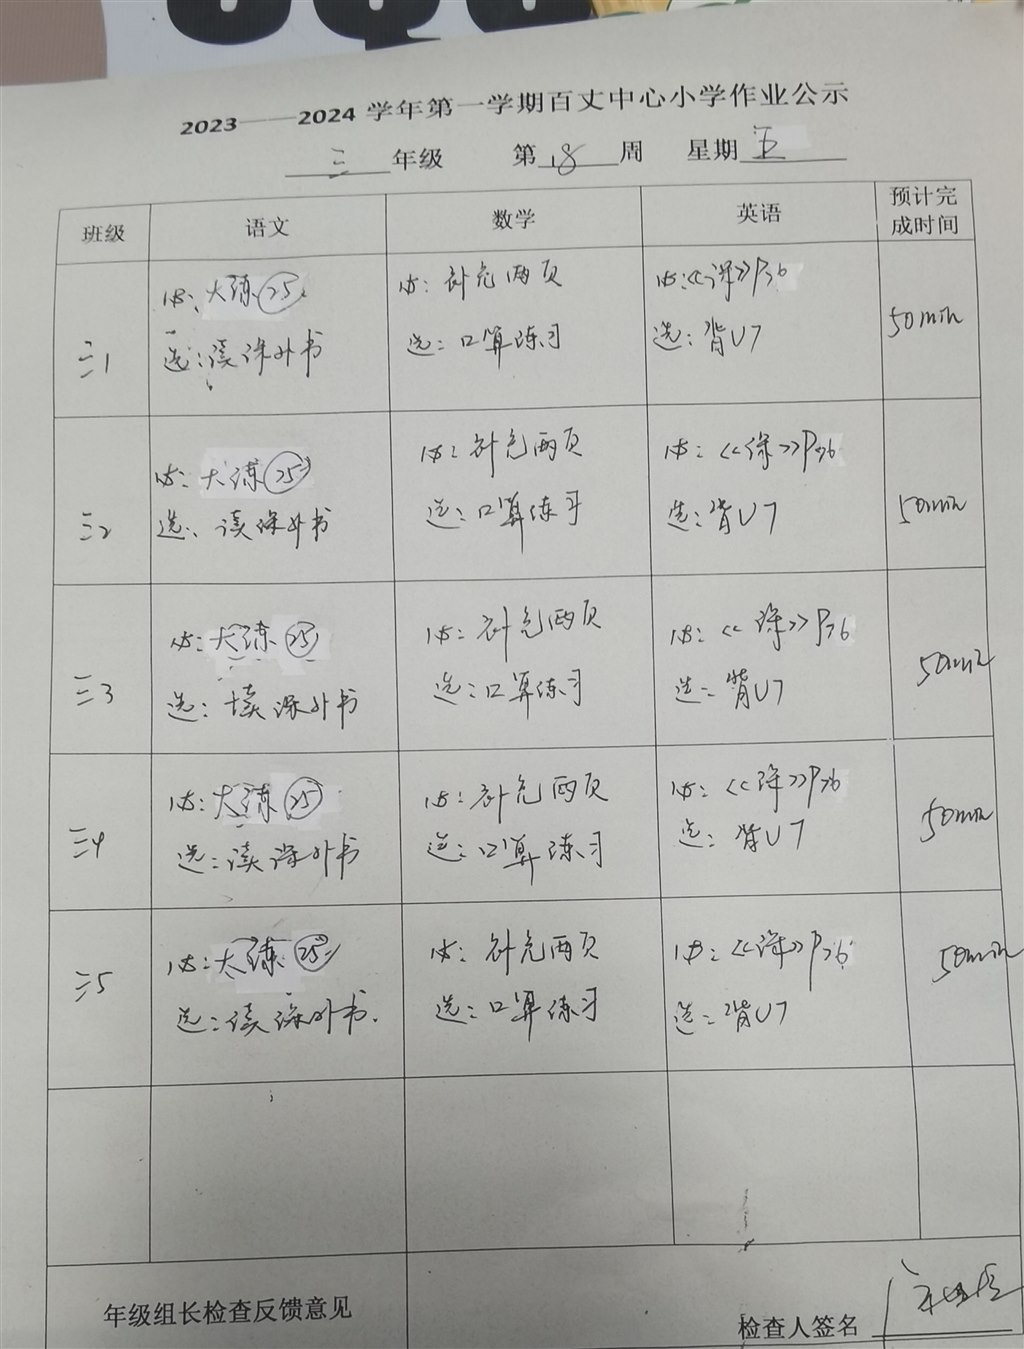 2023——2024 学年第一学期百丈中心小学作业公示
三 年级 第 18 周 星期 五
班级 语文 数学 英语 预计完成时间
三1 必：大练㉕ 必：补充两页 必：《课》P76 50min
选：读课外书 选：口算练习 选：背U7
三2 必：大练㉕ 必：补充两页 必：《课》P76 50min
选：读课外书 选：口算练习 选：背U7
三3 必：大练㉕ 必：补充两页 必：《课》P76 50min
选：读课外书 选：口算练习 选：背U7
三4 必：大练㉕ 必：补充两页 必：《课》P76 50min
选：读课外书 选：口算练习 选：背U7
三5 必：大练㉕ 必：补充两页 必：《课》P76 50min
选：读课外书. 选：口算练习 选：背U7
年级组长检查反馈意见
检查人签名